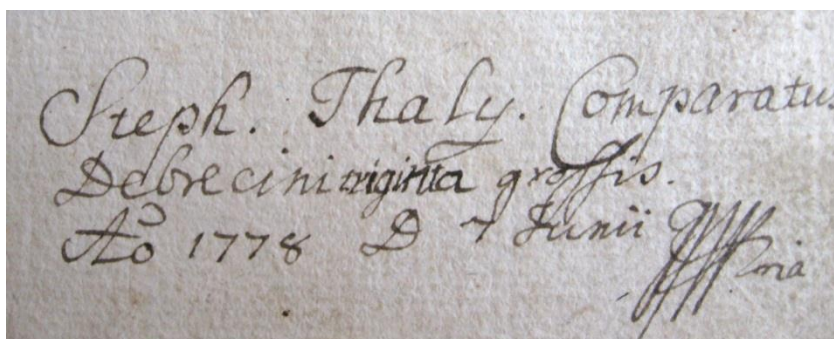 Steph. Thaly. Comparatu
Debrecini triginta grossis.
Ao 1778 D 7 Junii